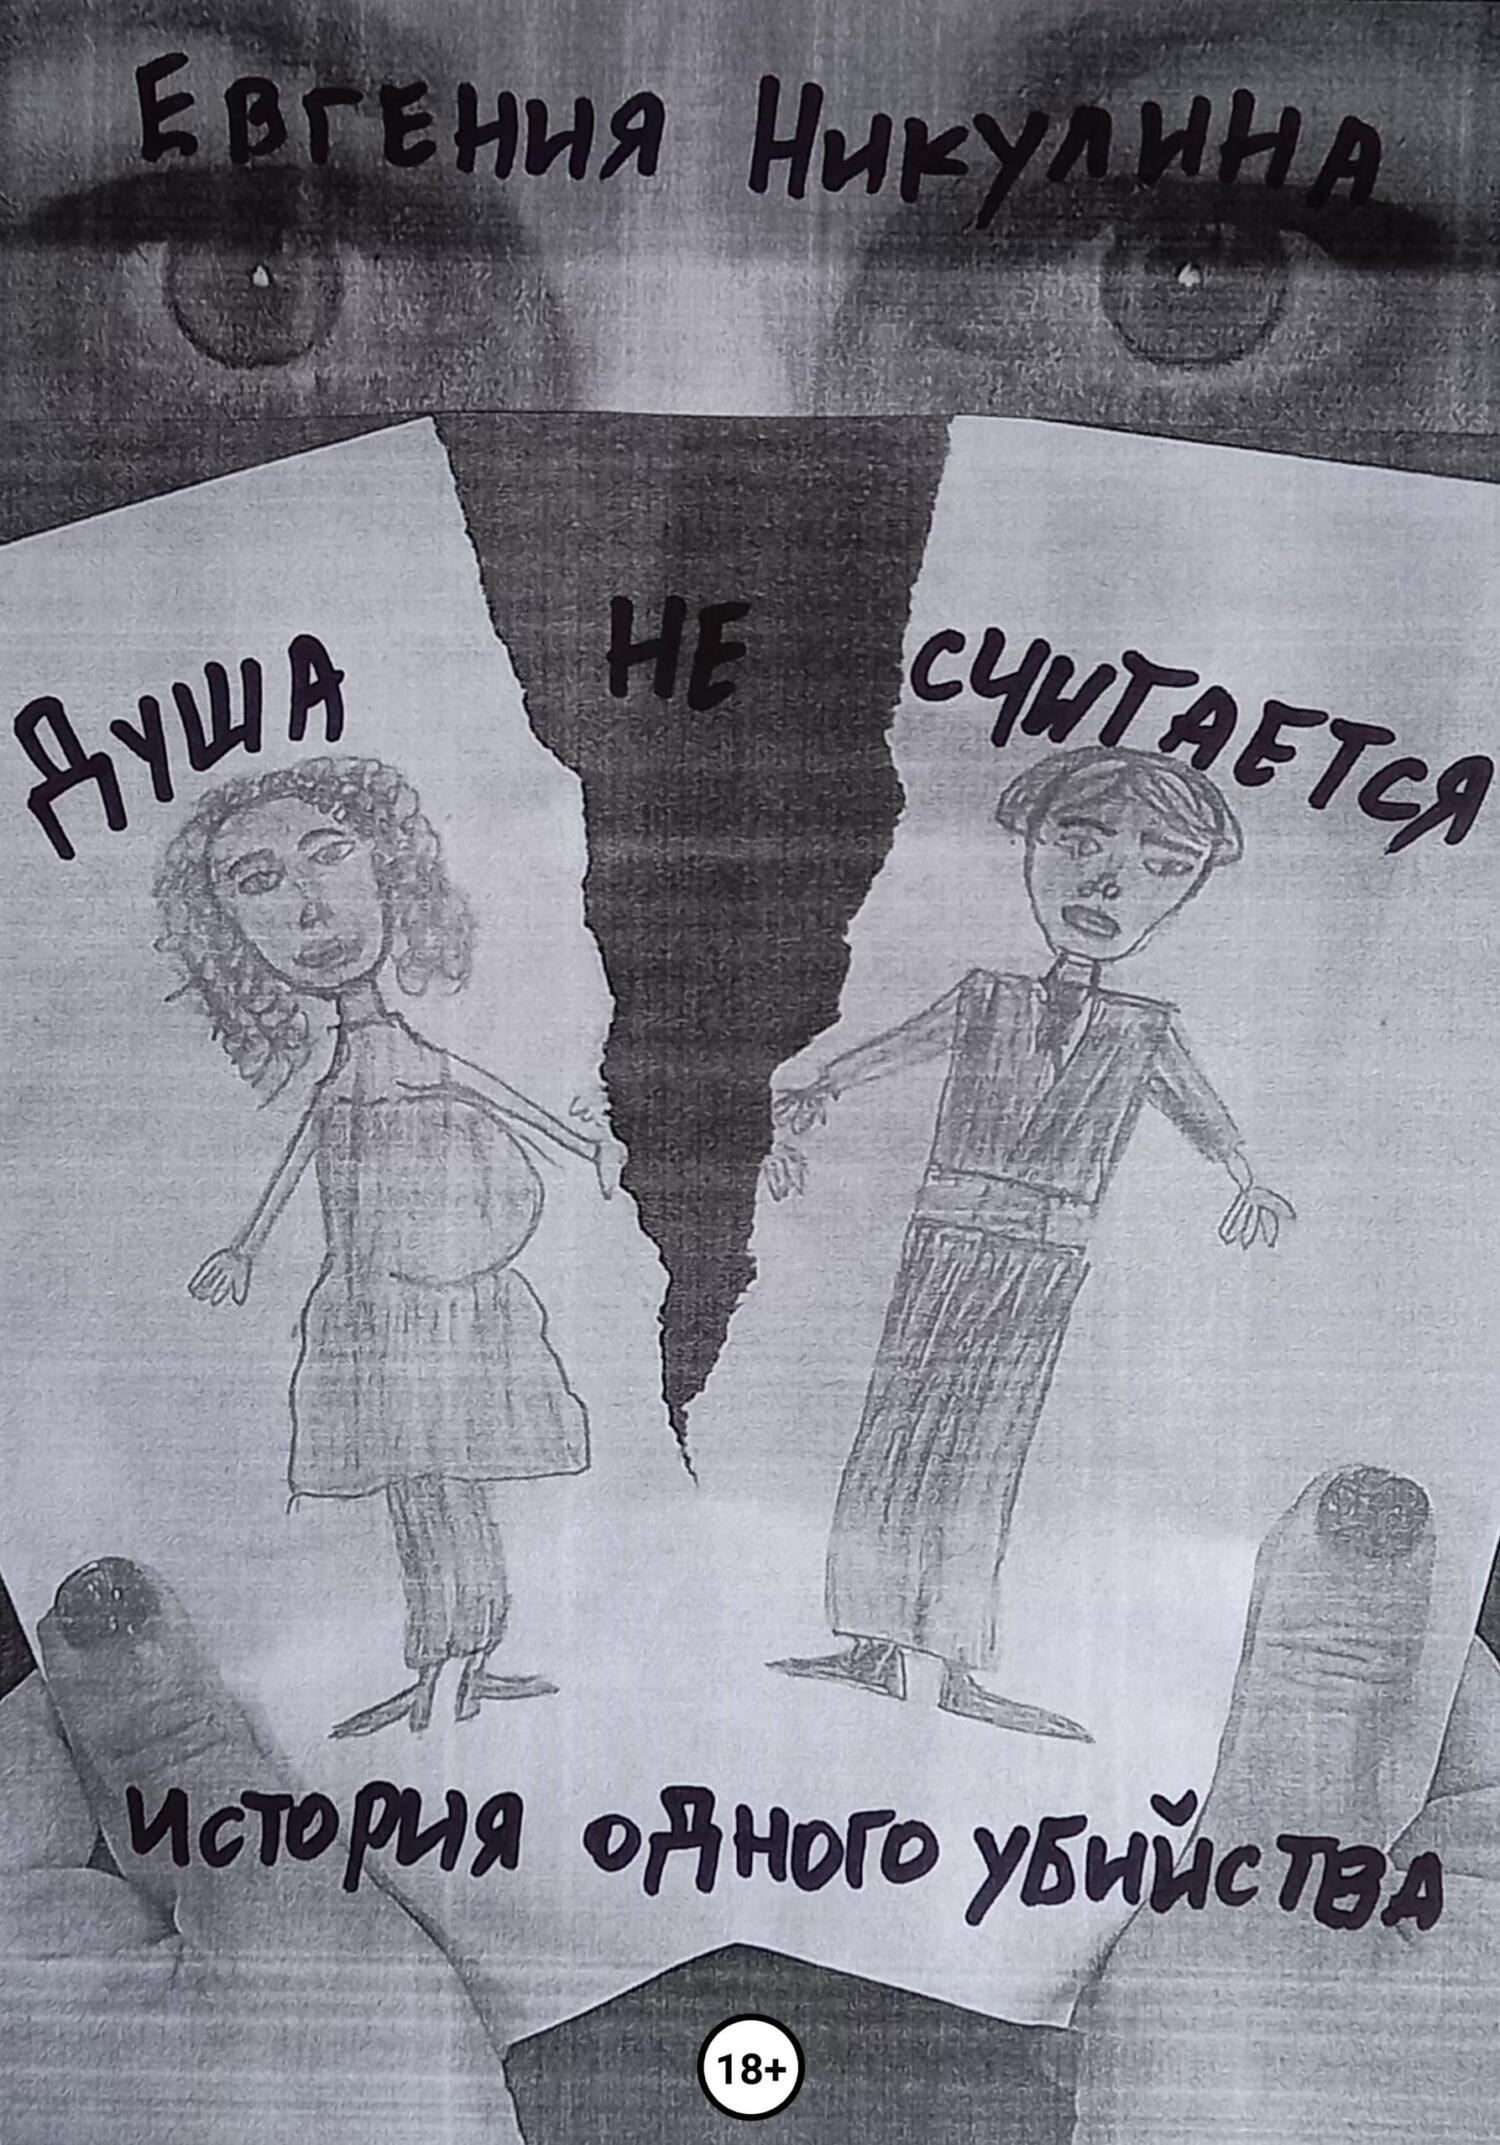 Евгения Никулина
Душа не считается
история одного убийства
18+